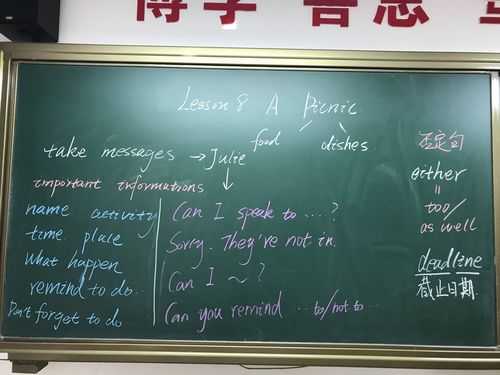 博学 善思
Lesson 8 A Picnic
food dishes
take messages → Julie
important informations
name activity
time. place
What happen
remind to do...
Don't forget to do
Can I speak to ...?
Sorry. They're not in.
Can I ~?
Can you remind ... to/not to ...
否定句
either
=
too/
as well
deadline
截止日期